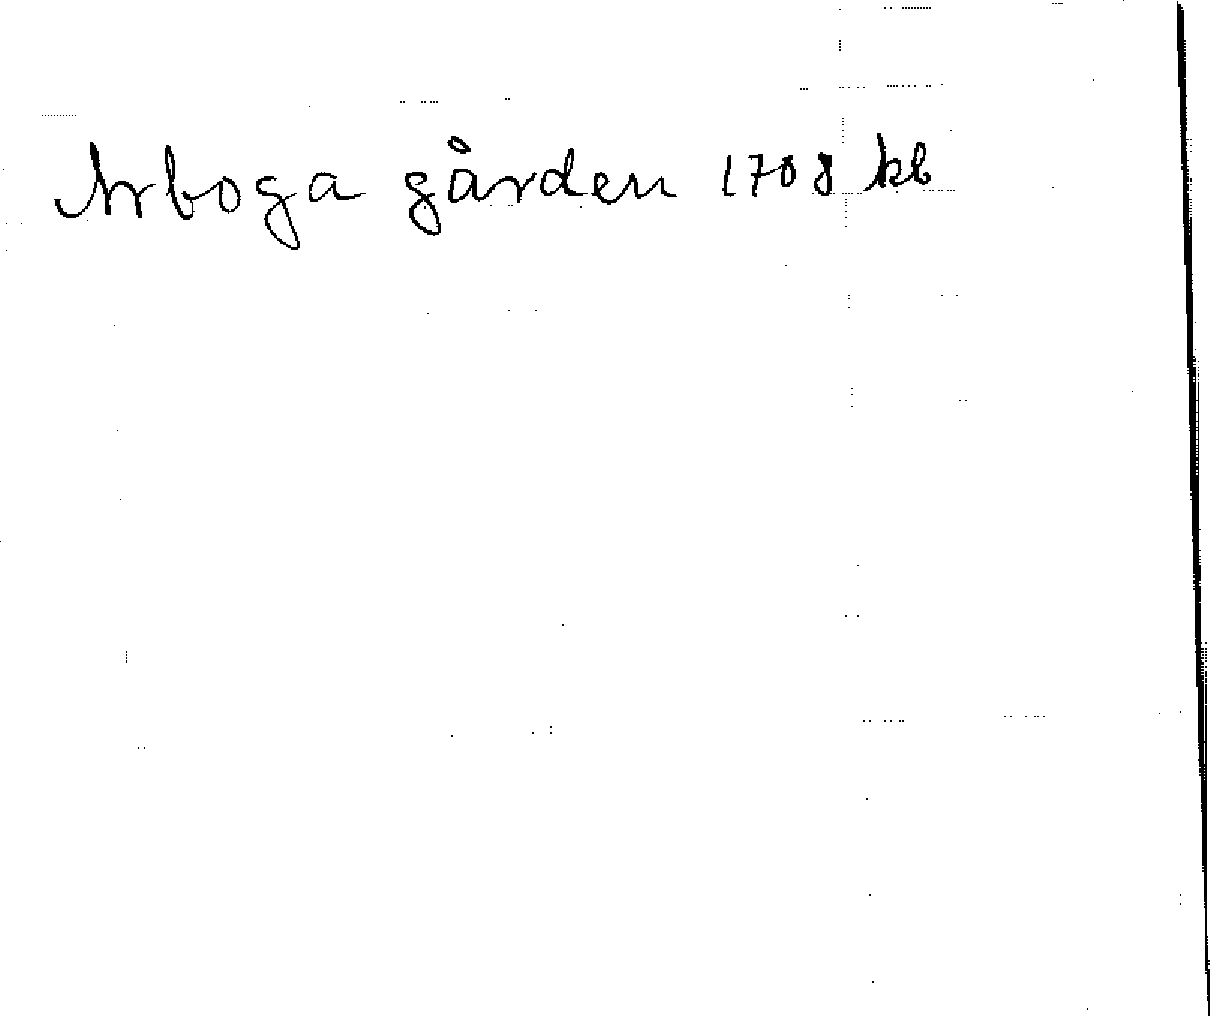 Arboga gården 1708 kb